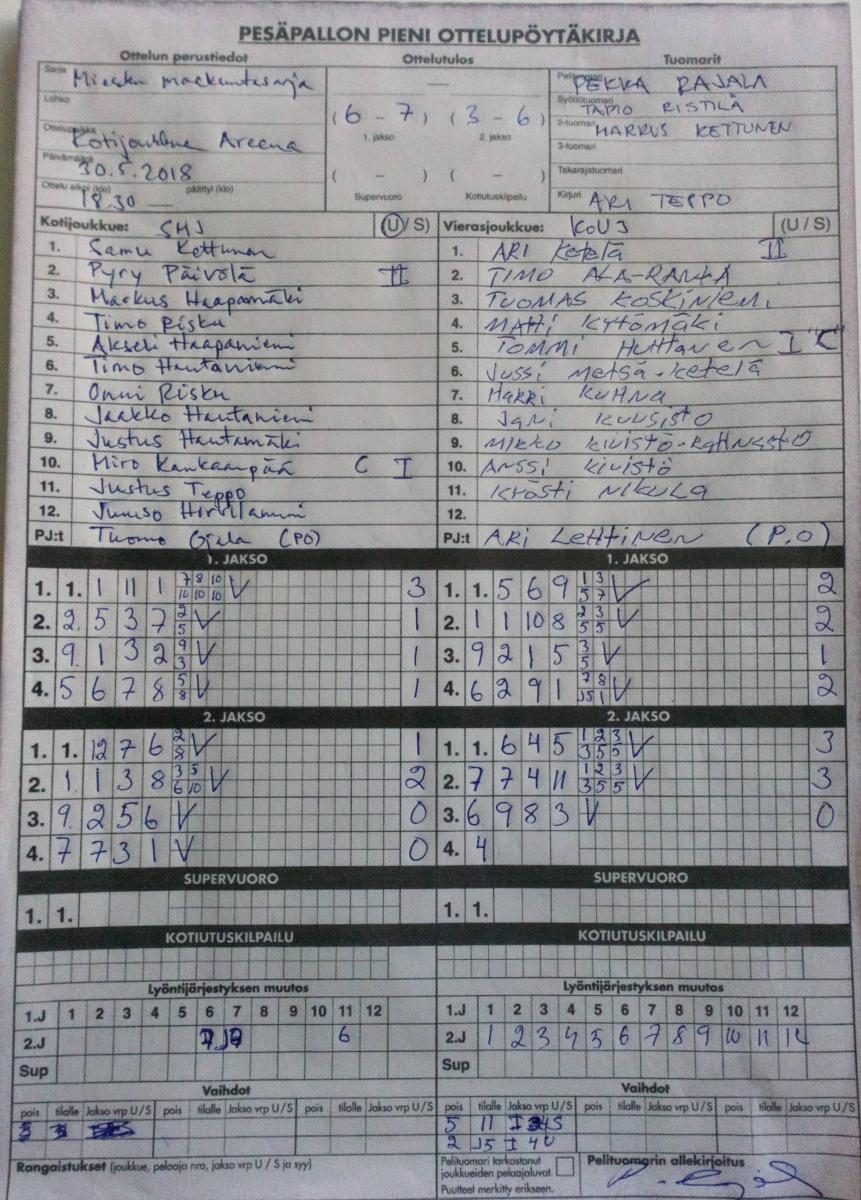 PESÄPALLON PIENI OTTELUPÖYTÄKIRJA
Ottelun perustiedot Ottelutulos Tuomarit
Sarja Miesten maakuntasarja
Lohko
Ottelupaikka Kotijoukkue Areena
Päivämäärä 30.5.2018
Ottelu alkoi (klo) 18.30 päättyi (klo) —
—
(6 - 7) (3 - 6)
1. jakso 2. jakso
( - ) ( - )
Supervuoro Kotiutuskilpailu
Pelituomari PEKKA RAJALA
Syöttötuomari TAPIO RISTILÄ
2-tuomari MARKUS KETTUNEN
3-tuomari
Takarajatuomari
Kirjuri ARI TEPPO
Kotijoukkue: SMJ (U/S)
1. Samu Kettunen
2. Pyry Päivölä II
3. Markus Haapamäki
4. Timo Risku
5. Akseli Haapaniemi
6. Timo Hautaniemi
7. Onni Risku
8. Jaakko Hautaniemi
9. Justus Hautamäki
10. Miro Kankaanpää C I
11. Justus Teppo
12.
PJ:t Tuomo Ojala (PO)
Vierasjoukkue: KOU J (U / S)
1. ARI Ketelä II
2. TIMO ALA-RANTA
3. TUOMAS KOSKINIEMI
4. MATTI KYTÖMÄKI
5. TOMMI HUHTANEN I "C"
6. JUSSI METSÄ-KETELÄ
7. HARRI KUHNA
8. JANI KUUSISTO
9. MIKKO KIVISTÖ-RAHNASTO
10. ANSSI KIVISTÖ
11. KRÖSTI NIKULA
12.
PJ:t ARI LEHTINEN (P.O)
1. JAKSO
1. 1. 1 11 1 7 8 10 10 10 10 V 3
2. 2. 5 3 7 2 5 V 1
3. 9 1 3 2 9 3 V 1
4. 5 6 7 8 5 8 V 1
1. JAKSO
1. 1. 5 6 9 1 3 5 7 V 2
2. 1 1 10 8 2 3 5 5 V 2
3. 9 2 1 5 3 5 V 1
4. 6 2 9 1 7 8 15 1 V 2
2. JAKSO
1. 1. 12 7 6 2 8 V 1
2. 1 1 3 8 3 5 6 10 V 2
3. 9 2 5 6 V 0
4. 7 7 3 1 V 0
2. JAKSO
1. 1. 6 4 5 1 2 3 3 5 5 V 3
2. 7 7 4 11 1 2 3 3 5 5 V 3
3. 6 9 8 3 V 0
4. 4
SUPERVUORO
1. 1.
SUPERVUORO
1. 1.
KOTIUTUSKILPAILU
KOTIUTUSKILPAILU
Lyöntijärjestyksen muutos
1.J 1 2 3 4 5 6 7 8 9 10 11 12
2.J 6
Sup
Lyöntijärjestyksen muutos
1.J 1 2 3 4 5 6 7 8 9 10 11 12
2.J 1 2 3 4 5 6 7 8 9 10 11 12
Sup
Vaihdot
pois tilalle Jakso vrp U/S pois tilalle Jakso vrp U/S pois tilalle Jakso vrp U/S
Vaihdot
pois tilalle Jakso vrp U/S pois tilalle Jakso vrp U/S pois tilalle Jakso vrp U/S
5 11 I S
2 15 I 4U
Rangaistukset (joukkue, pelaaja nro, jakso vrp U / S ja syy)
Pelituomari tarkastanut
joukkueiden pelaajaluvat.
Puutteet merkitty erikseen.
Pelituomarin allekirjoitus